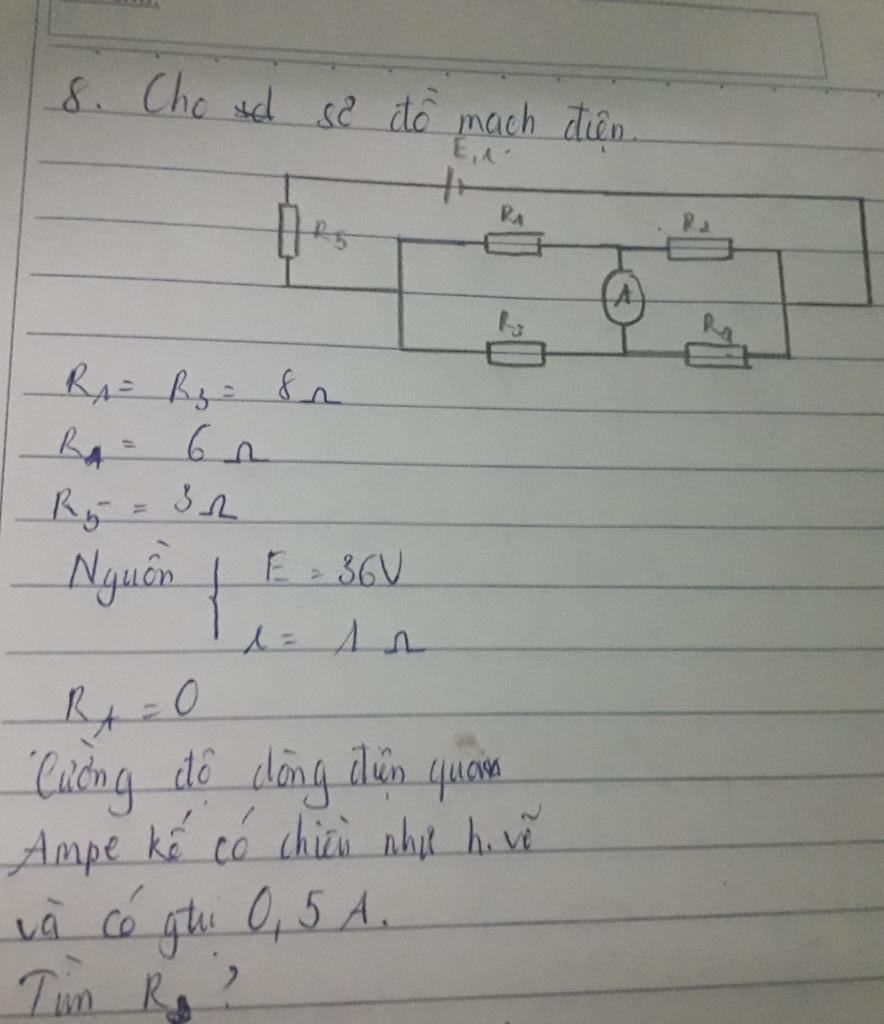 8. Cho sơ đồ mạch điện.
E, r
R1
R2
R5
A
R3
R4
R1 = R3 = 8 Ω
R4 = 6 Ω
R5 = 3 Ω
Nguồn { E = 36V
r = 1 Ω
RA = 0
Cường độ dòng điện qua
Ampe kế có chiều như h.vẽ
và có gtri 0,5 A.
Tìm R ?